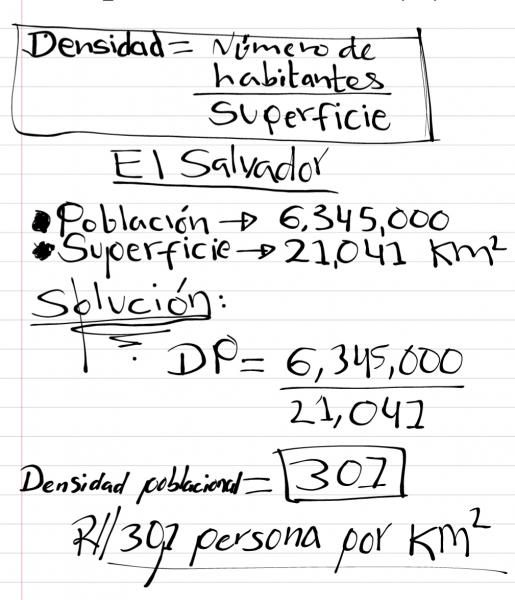 Densidad = Número de
habitantes
Superficie
El Salvador
• Población → 6,345,000
• Superficie → 21,041 Km²
Solución:
DP = 6,345,000
21,041
Densidad poblacional = 301
R// 301 persona por Km²